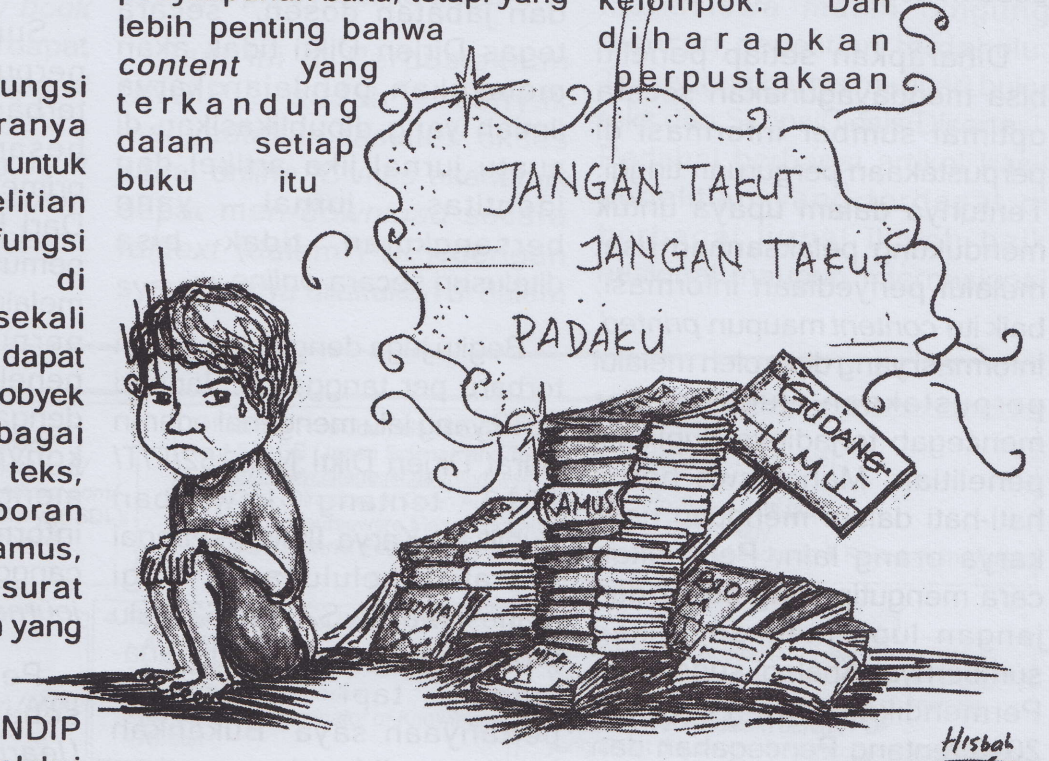 ungsi
ranya
untuk
elitian
ungsi
di
sekali
dapat
obyek
bagai
teks,
poran
amus,
surat
yang
NDIP
lebih penting bahwa
content yang
terkandung
dalam setiap
buku itu
kelompok. Dan
diharapkan
perpustakaan
JANGAN TAKUT
JANGAN TAKUT
PADAKU
GUDANG
ILMU
KAMUS
BIO
Hisbah